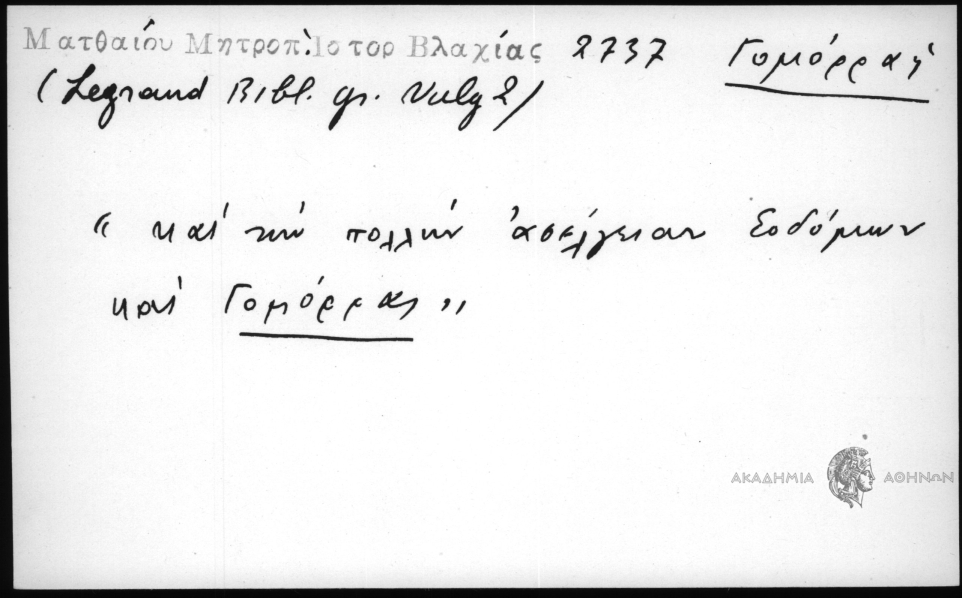 Ματθαίου Μητροπ. Ιστορ Βλαχίας 2737 Γομόρρα ἡ
(Legrand Bibl. gr. Vulg 2)
“ καὶ τὴν πολλὴν ἀσέλγειαν Σοδόμων
καὶ Γομόρρας ”
ΑΚΑΔΗΜΙΑ ΑΘΗΝΩΝ